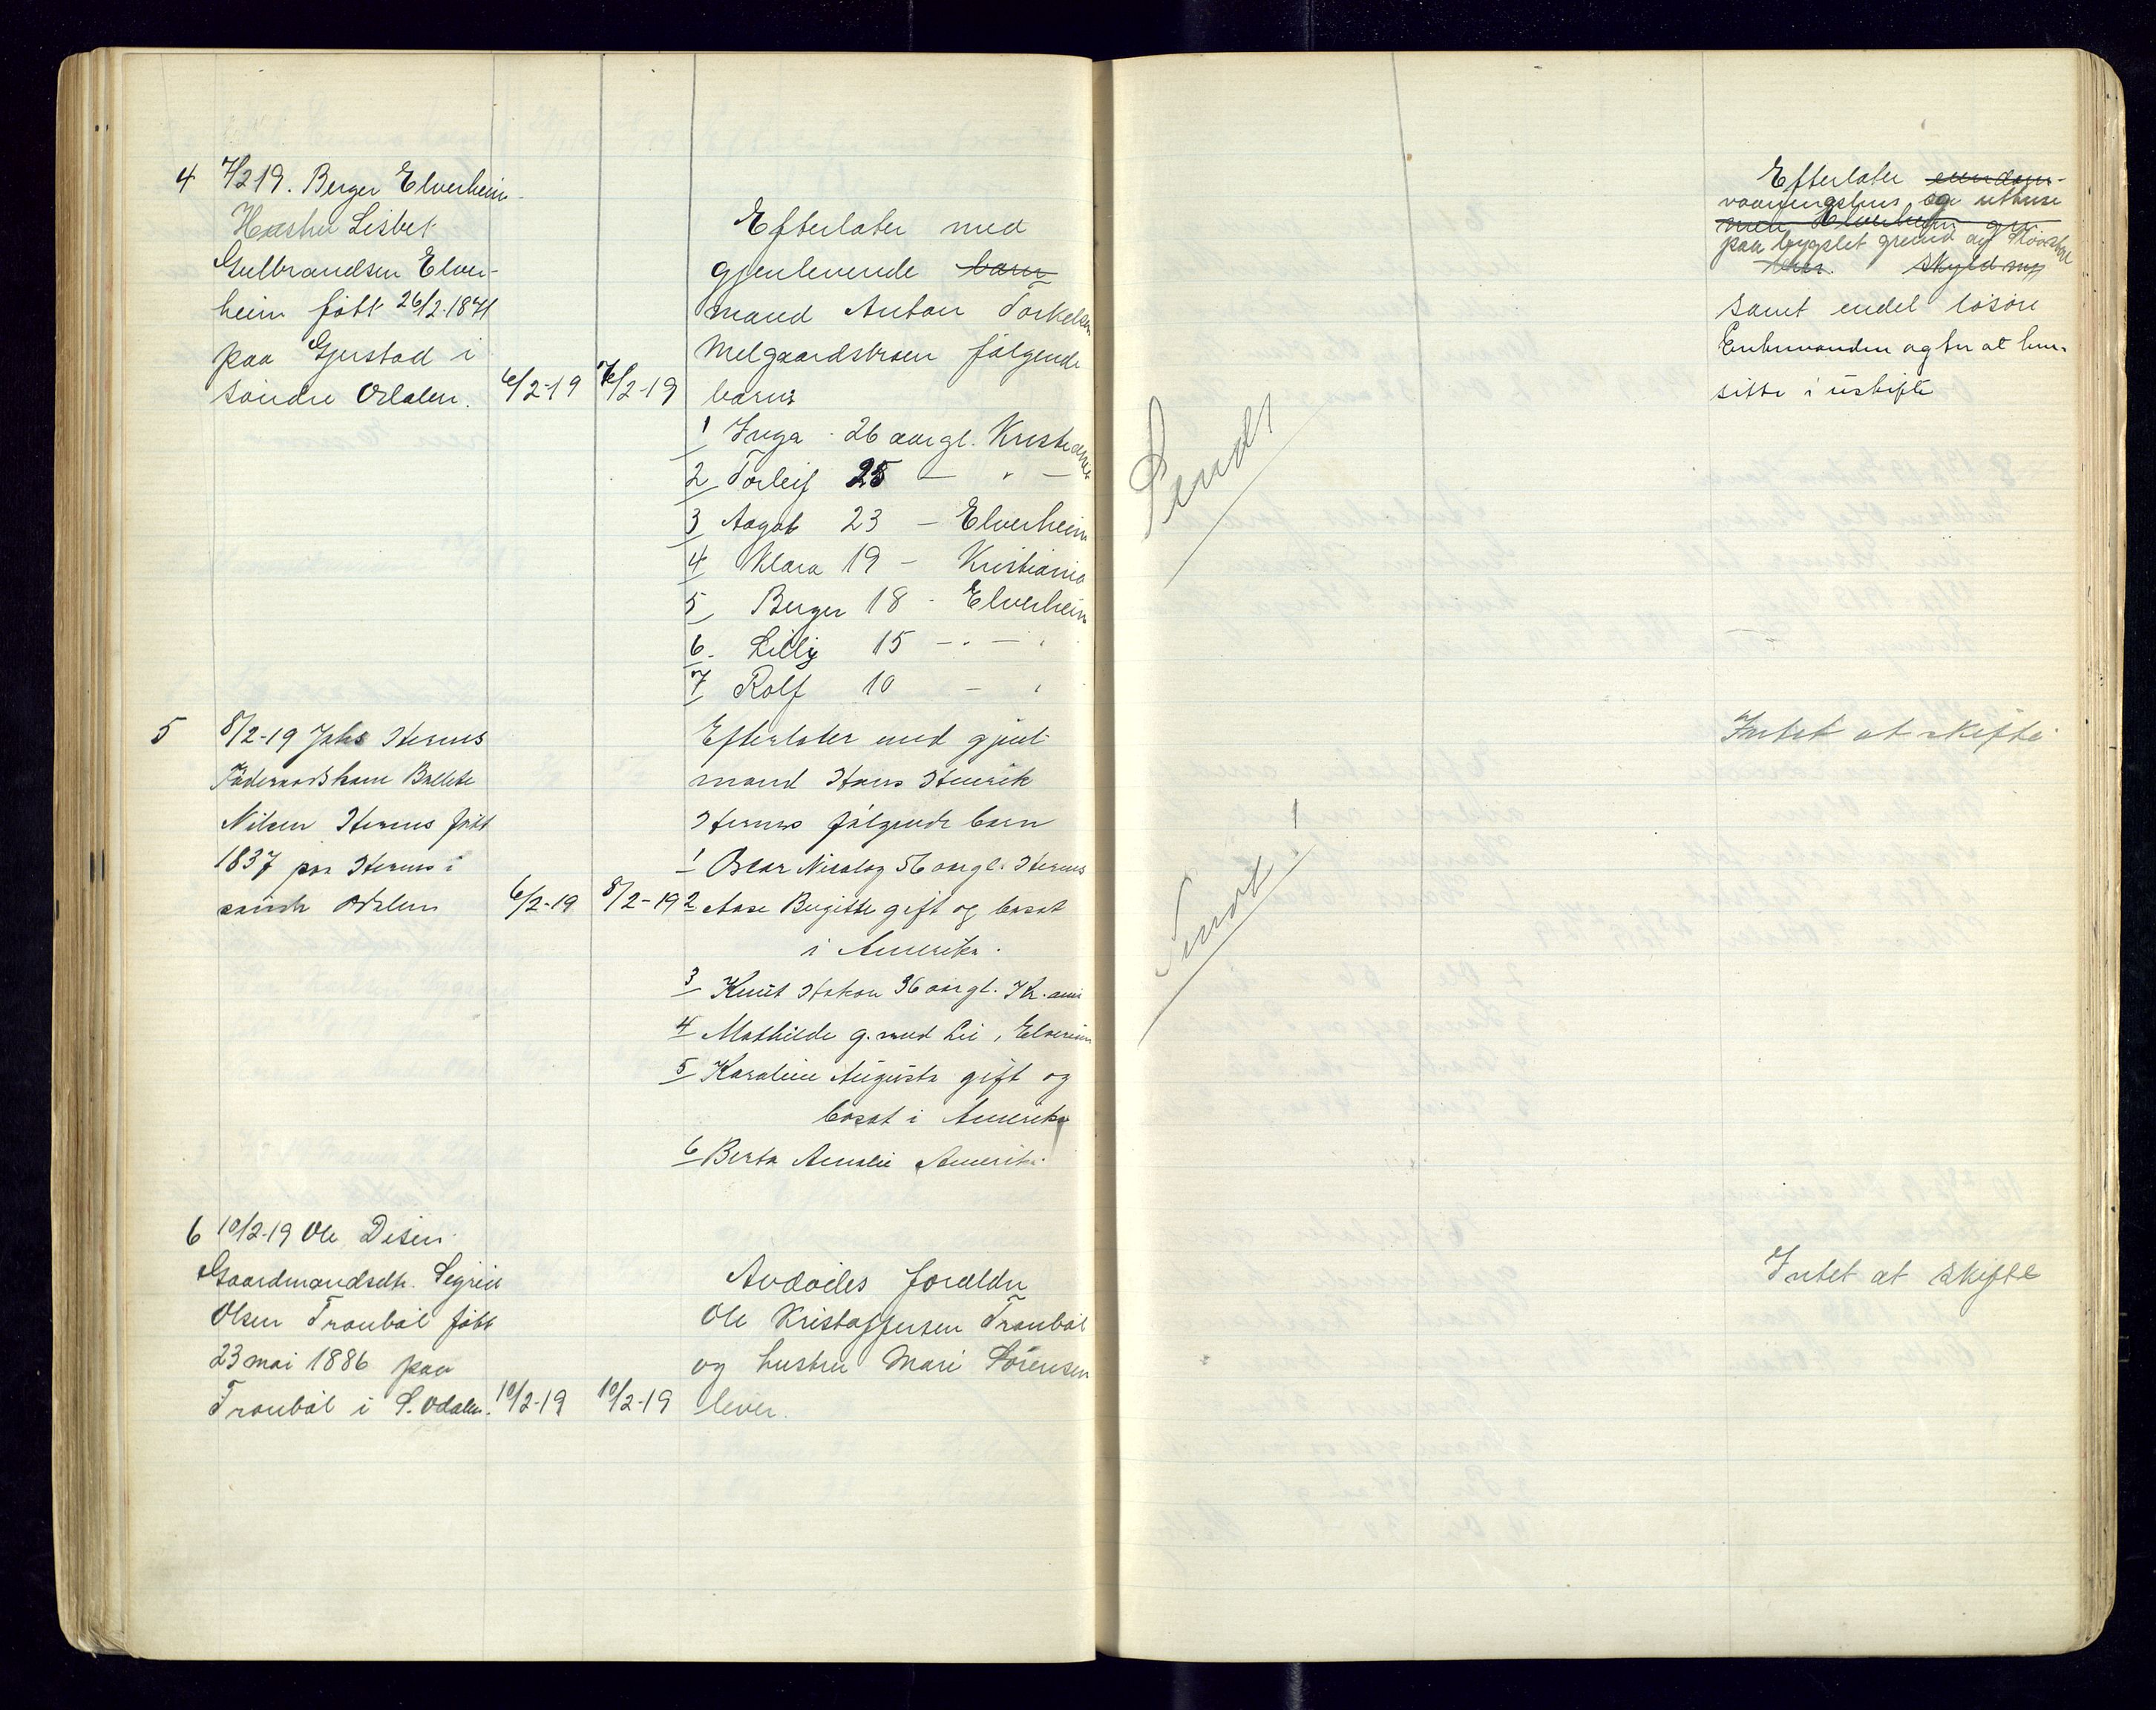 4 7/2 19. Berger Elverheim
Hustru Lisbet
Gulbrandsen Elver-
heim født 26/2. 1871
paa Gjerstad i
søndre Odalen. 6/2-19 7/2-19
Efterlater med
gjenlevende barn
mand Anton Torkelsen
Melgaardstroen følgende
barn:
1 Inga 26 aar gl. Kristiania
2 Torleif 25 — " —
3 Aagot 23 — Elverheim
4 Klara 19 — Kristiania
5 Berger 18 - Elverheim
6. Lilly 15 — " —
7 Rolf 10 — "
5 8/2-19 Johs Hernes
Nilsen Hernes født
1837 paa Hernes i
søndre Odalen 6/2-19 8/2-19
Efterlater med gjenl.
mand Hans Henrik
Hernes følgende barn
1 Oscar Nicolay 56 aar gl. Hernes
2 Aase Birgitte gift og bosat
i Amerika.
3 Knut Hakon 36 aar gl. Kr.ania
4 Mathilde g. med Lie, Elverum
5 Karoline Augusta gift og
bosat i Amerika
6 Berta Amalie Amerika.
6 10/2-19 Ole Disen
Gaardmandsdtr. Sigrid
Olsen Tronbøl født
23 mai 1886 paa
Tronbøl i S. Odalen. 10/2-19 10/2-19
Avdødes forældre
Ole Kristoffersen Tronbøl
og hustru Mari Sørensen
lever.
Sendt
Sendt!
Efterlater eiendom
vaaningshus og uthuse
med Elverheim
paa bygslet grund av
skyld
samt endel løsøre
Enkemanden agter at hen-
sitte i uskifte
Intet at skifte
Intet at skifte